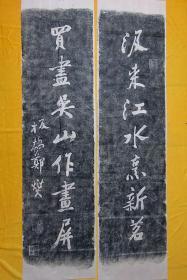 汲来江水烹新茗
買盡吳山作畫屏
板橋鄭燮